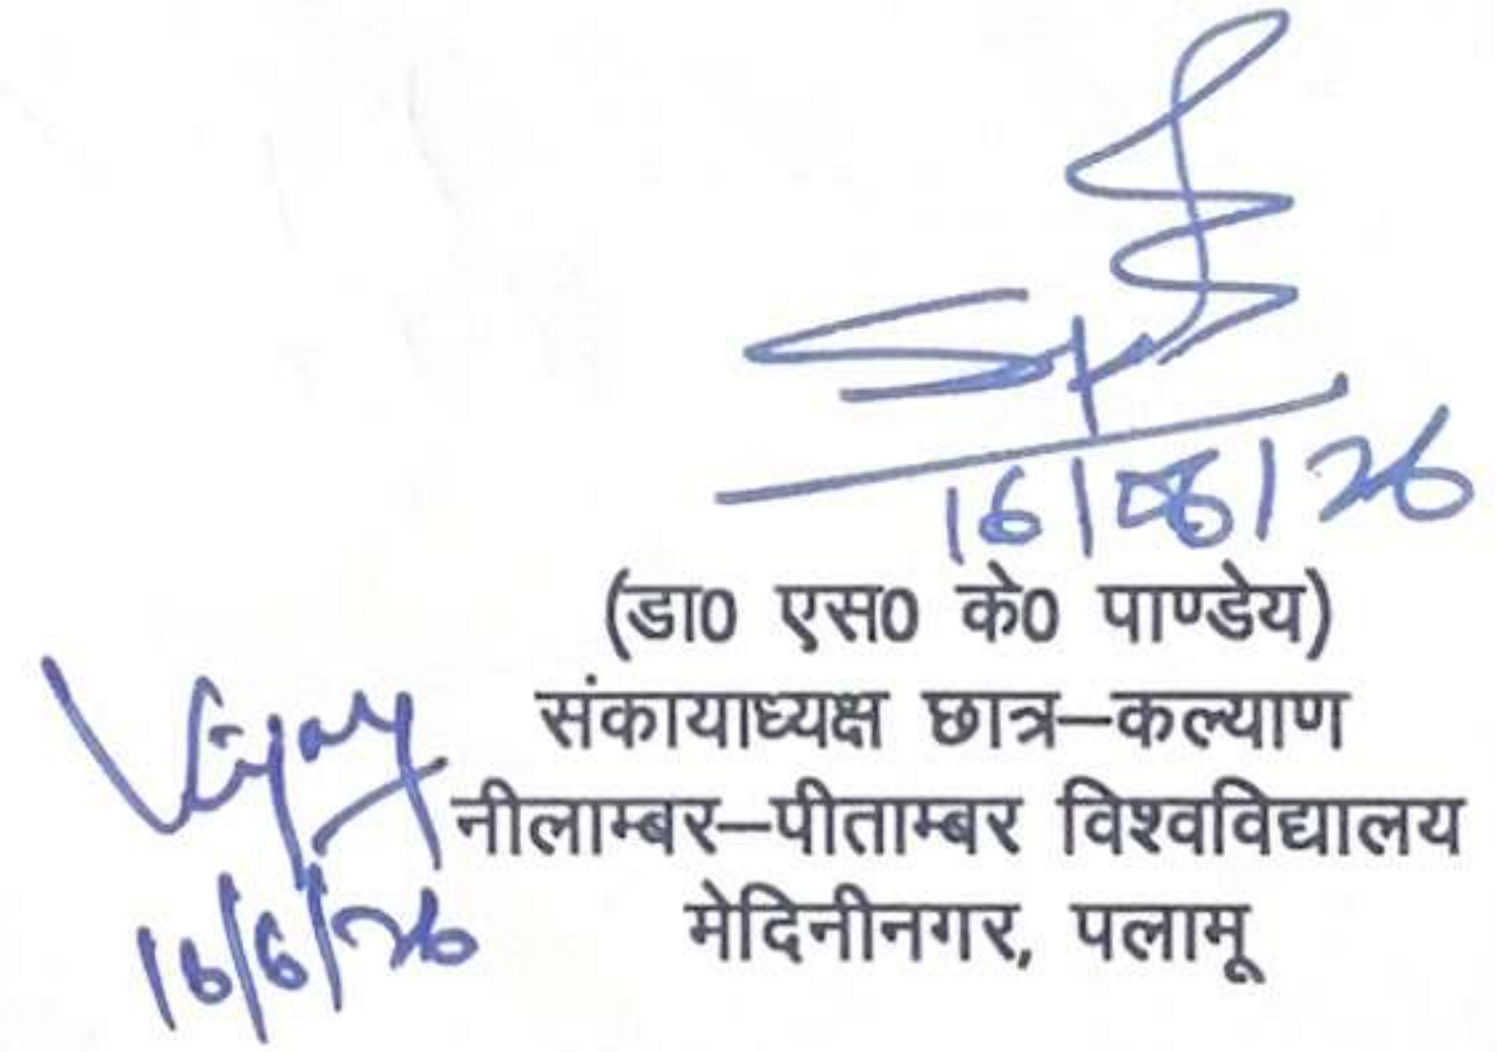 16/06/26
(डा0 एस0 के0 पाण्डेय)
संकायाध्यक्ष छात्र–कल्याण
नीलाम्बर–पीताम्बर विश्वविद्यालय
मेदिनीनगर, पलामू
Vijay
16/6/26